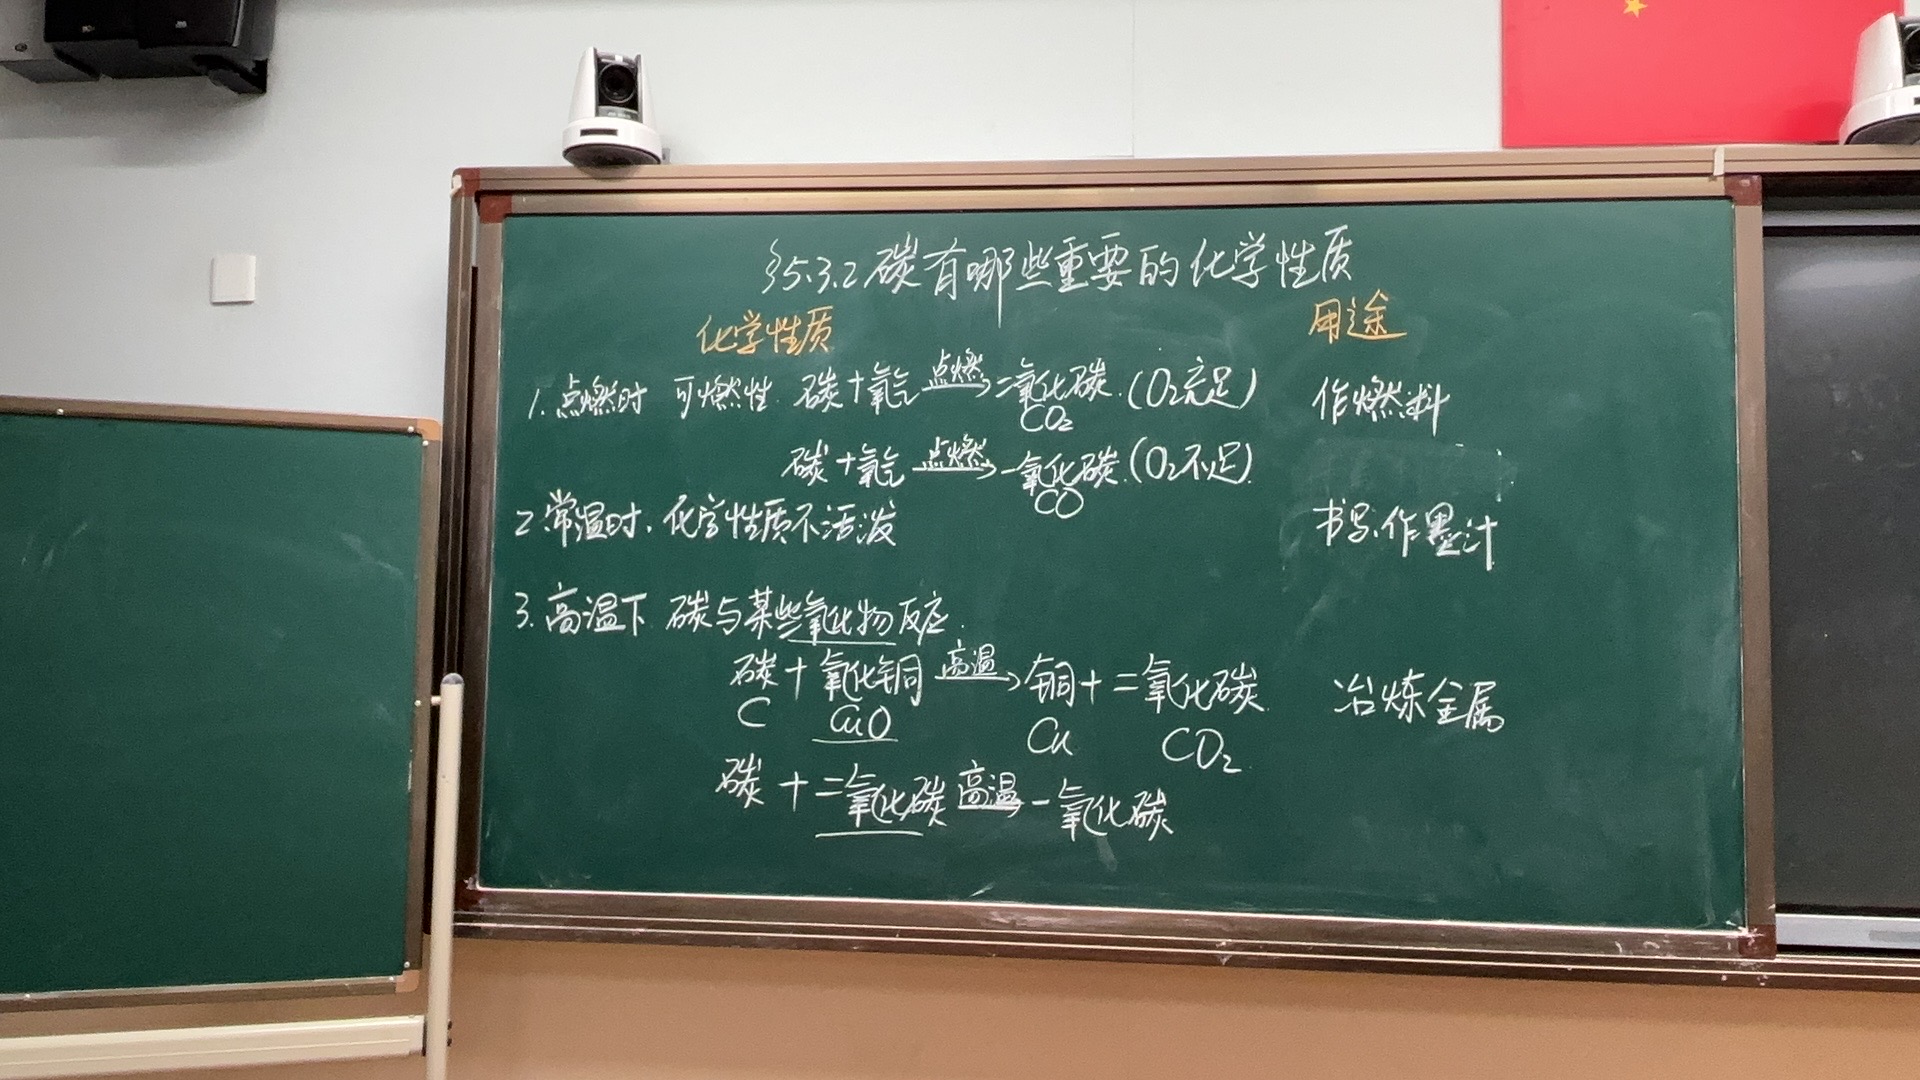 §5.3.2 碳有哪些重要的化学性质
化学性质 用途
1. 点燃时 可燃性 碳+氧气 点燃→ 二氧化碳 (O₂充足) 作燃料
CO₂
碳+氧气 点燃→ 一氧化碳 (O₂不足)
CO
2 常温时, 化学性质不活泼 书写、作墨汁
3. 高温下 碳与某些氧化物反应.
碳+氧化铜 高温→ 铜+二氧化碳 冶炼金属
C CuO Cu CO₂
碳+二氧化碳 高温→ 一氧化碳